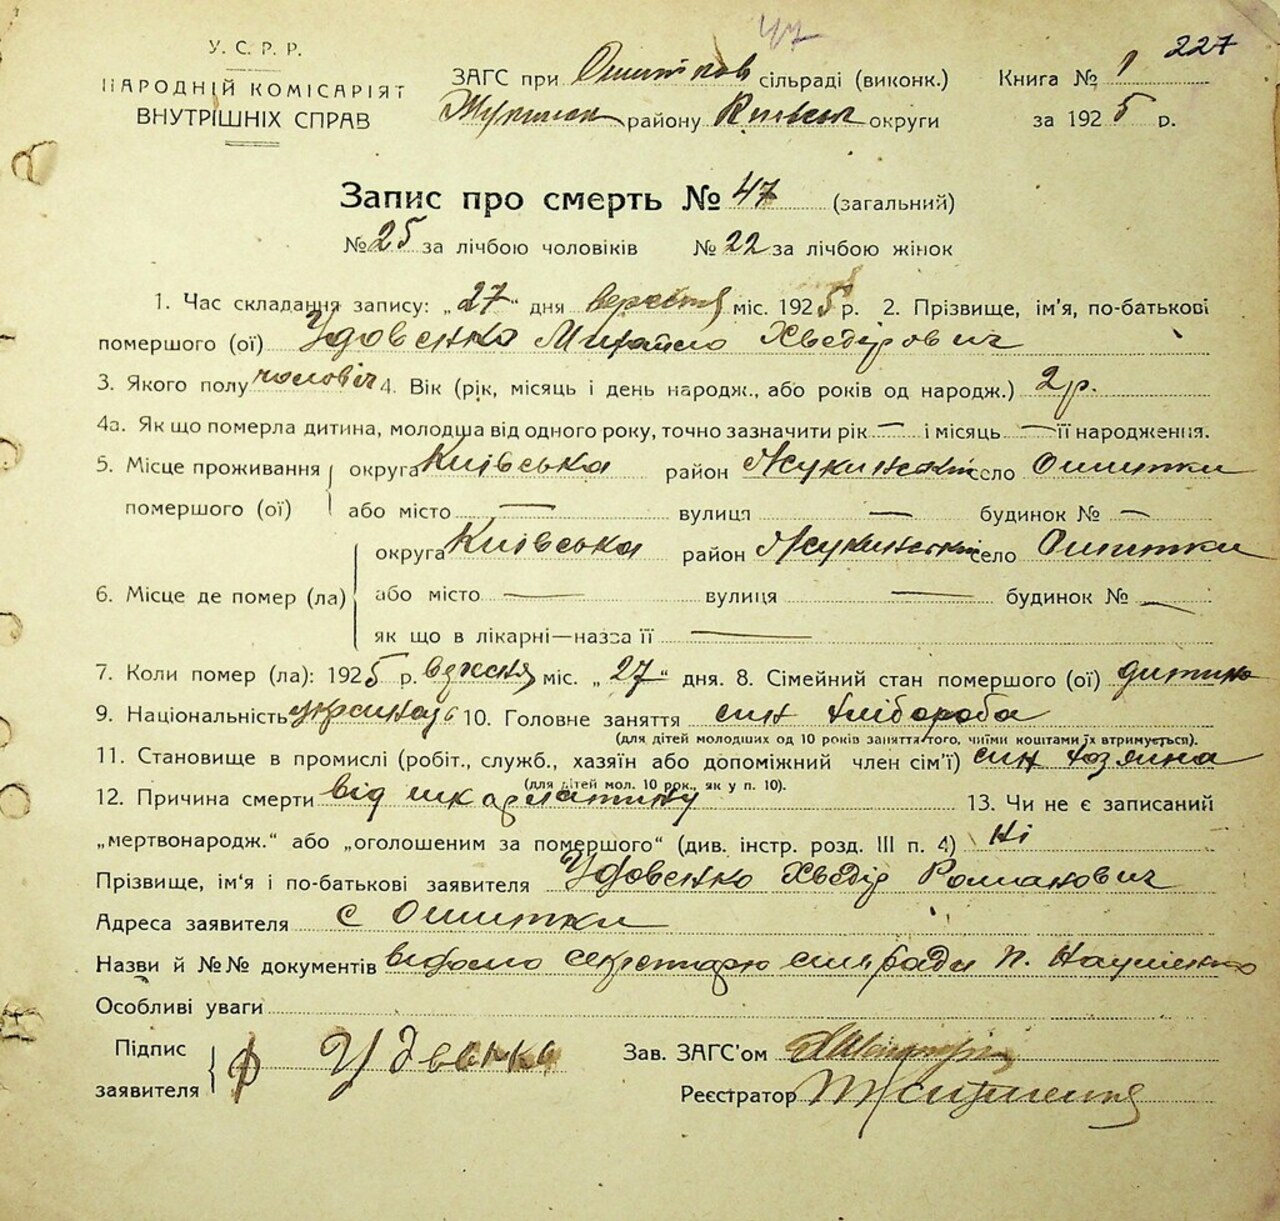 47 227
У. С. Р. Р.
НАРОДНІЙ КОМІСАРІЯТ
ВНУТРІШНІХ СПРАВ
ЗАГС при Ошитков сільраді (виконк.)
Жукинськ району Київськ округи
Книга № 1
за 1925 р.
Запис про смерть № 47 (загальний)
№ 25 за лічбою чоловіків № 22 за лічбою жінок
1. Час складання запису: „27" дня вересня міс. 1925 р. 2. Прізвище, ім'я, по-батькові
помершого (ої) Удовенко Михайло Хведірович
3. Якого полу чоловіч 4. Вік (рік, місяць і день народж., або років од народж.) 2 р.
4а. Як що померла дитина, молодша від одного року, точно зазначити рік — і місяць — її народження.
5. Місце проживання помершого (ої) округа Київська район Жукинський село Ошитки
або місто — вулиця — будинок № —
6. Місце де помер (ла) округа Київська район Жукинський село Ошитки
або місто — вулиця — будинок № —
як що в лікарні—назва її —
7. Коли помер (ла): 1925 р. вересня міс. „27" дня. 8. Сімейний стан помершого (ої) дитина
9. Національність 10. Головне заняття син хлібороба
(для дітей молодших од 10 років заняття того, чиїми коштами їх втримується).
11. Становище в промислі (робіт., служб., хазяїн або допоміжний член сім'ї) син хозяина
(для дітей мол. 10 рок., як у п. 10).
12. Причина смерти від шкарлатину 13. Чи не є записаний
„мертвонародж." або „оголошеним за помершого" (див. інстр. розд. III п. 4) Ні
Прізвище, ім'я і по-батькові заявителя Удовенко Хведір Романович
Адреса заявителя с Ошитки
Назви й №№ документів відомо секретарю сільради П. Науменко
Особливі уваги
Підпис заявителя Ф Удвенко
Зав. ЗАГС'ом
Реєстратор